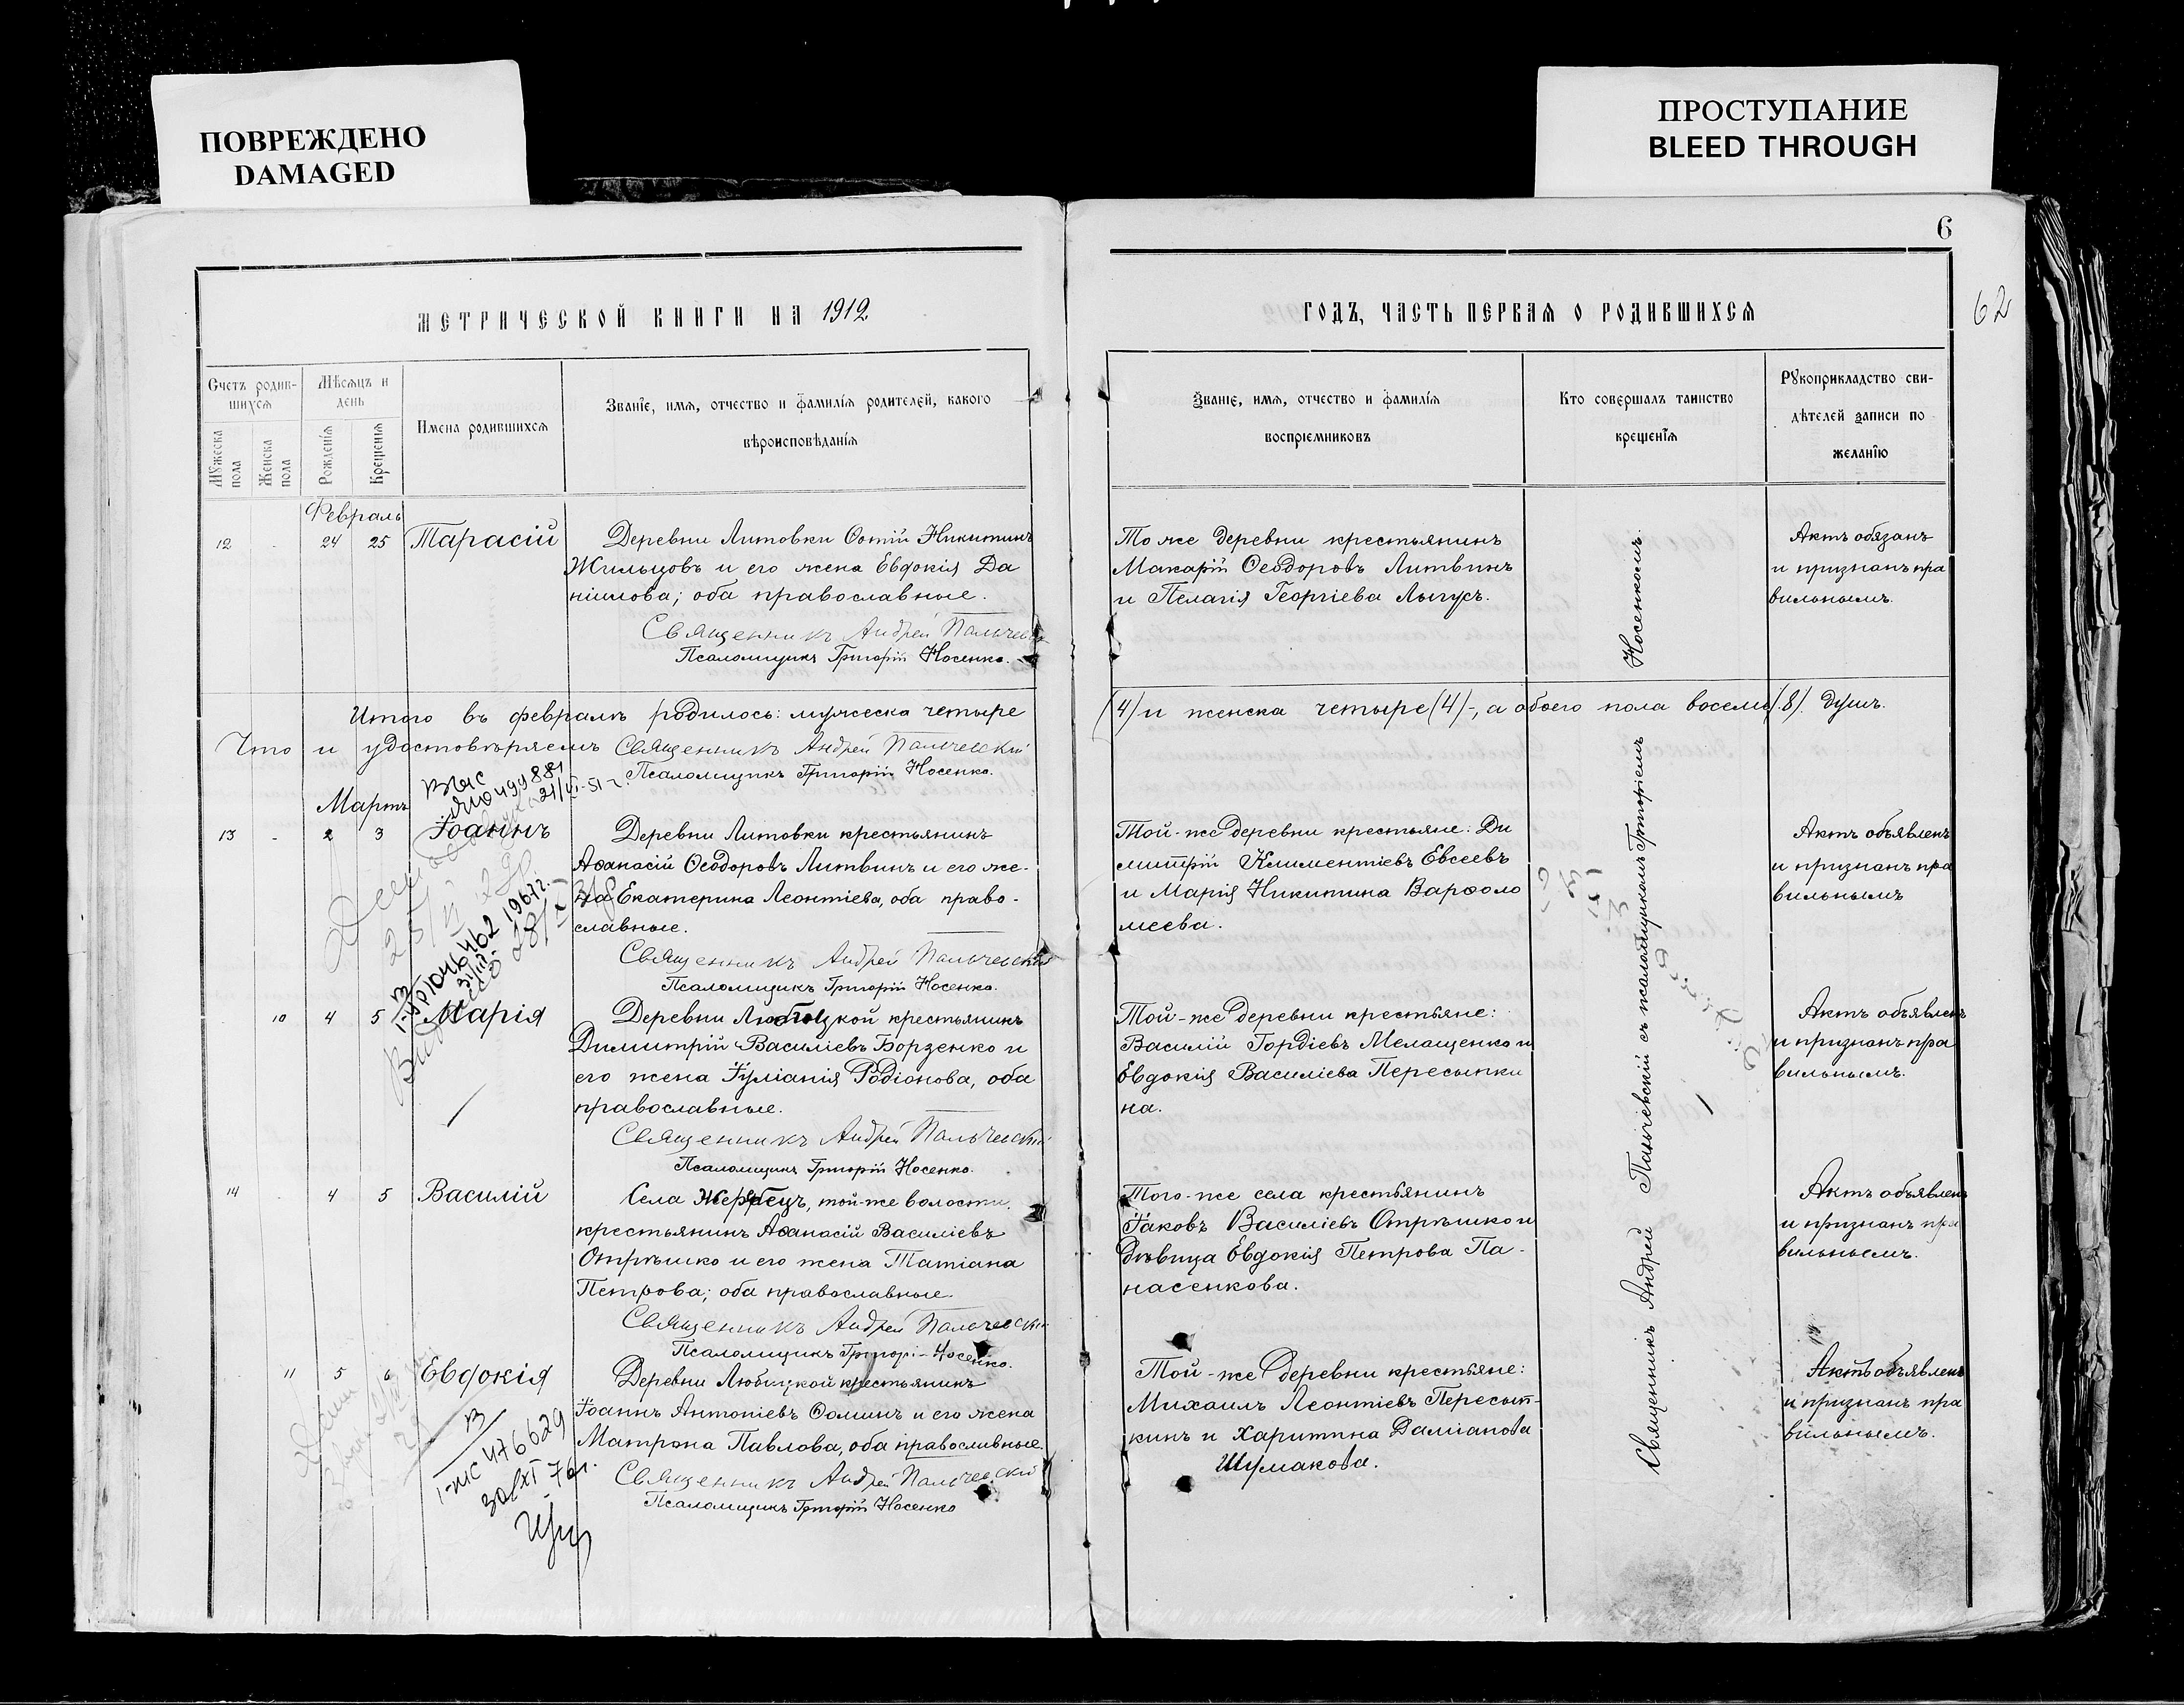 ПОВРЕЖДЕНО
DAMAGED
ПРОСТУПАНИЕ
BLEED THROUGH
6
62
МЕТРИЧЕСКОЙ КНИГИ НА 1912
ГОДЪ, ЧАСТЬ ПЕРВАЯ О РОДИВШИХСЯ
Счетъ родив-
шихся
Мѣсяцъ и
день
Мужеска
пола
Женска
пола
Рожденія
Крещенія
Имена родившихся
Званіе, имя, отчество и фамилія родителей, какого
вѣроисповѣданія
Званіе, имя, отчество и фамилія
воспріемниковъ
Кто совершалъ таинство
крещенія
Рукоприкладство сви-
дѣтелей записи по
желанію
Февраль
12 - 24 25 Тарасій
Деревни Литовки Фотій Никитинъ
Жильцовъ и его жена Евдокія Да
ніилова; оба православные.
Священникъ Андрей Пальчевскій
Псаломщикъ Григорій Носенко.
То же деревни крестьянинъ
Макарій Ѳеодоровъ Литвинъ
и Пелагія Георгіева Лыгусъ.
Актъ обязанъ
и признанъ пра
вильнымъ.
Итого въ февралѣ родилось: мужеска четыре (4) и женска четыре (4)-, а обоего пола восемь (8). душъ.
Что и удостовѣряемъ Священникъ Андрей Пальчевскій
Псаломщикъ Григорій Носенко.
Мартъ
13 - 2 3 Іоаннъ
Деревни Литовки крестьянинъ
Аѳанасій Ѳеодоровъ Литвинъ и его же-
на Екатерина Леонтіева, оба право-
славные.
Священникъ Андрей Пальчевскій
Псаломщикъ Григорій Носенко.
Той-же деревни крестьяне: Ди
митрій Климентіевъ Евсеевъ
и Марія Никитина Варѳоло
меева.
Актъ объявленъ
и признанъ пра
вильнымъ
1967г.
10 4 5 Марія
Деревни Любицкой крестьянинъ
Димитрій Василіевъ Борзенко и
его жена Іуліанія Родіонова, оба
православные.
Священникъ Андрей Пальчевскій
Псаломщикъ Григорій Носенко.
Той-же деревни крестьяне:
Василій Гордіевъ Мелащенко и
Евдокія Василіева Пересыпки
на.
Актъ объявленъ
и признанъ пра
вильнымъ.
14 - 4 5 Василій
Села Жеребецъ, той-же волости,
крестьянинъ Аѳанасій Василіевъ
Отрѣшко и его жена Татіана
Петрова; оба православные.
Священникъ Андрей Пальчевскій
Псаломщикъ Григорі- Носенко.
Того-же села крестьянинъ
Іаковъ Василіевъ Отрѣшко и
дѣвица Евдокія Петрова Па-
насенкова.
Актъ объявленъ
и признанъ пра
вильнымъ.
11 5 6 Евдокія
Деревни Любицкой крестьянинъ
Іоаннъ Антоніевъ Ѳоминъ и его жена
Матрона Павлова, оба православные.
Священникъ Андрей Пальчевскій
Псаломщикъ Григорій Носенко
476629
Той-же деревни крестьяне:
Михаилъ Леонтіевъ Пересып-
кинъ и Харитина Даміанова
Шумакова.
Актъ объявленъ
и признанъ пра
вильнымъ.
Священникъ Андрей Пальчевскій съ псаломщикомъ Григоріемъ Носенкомъ.